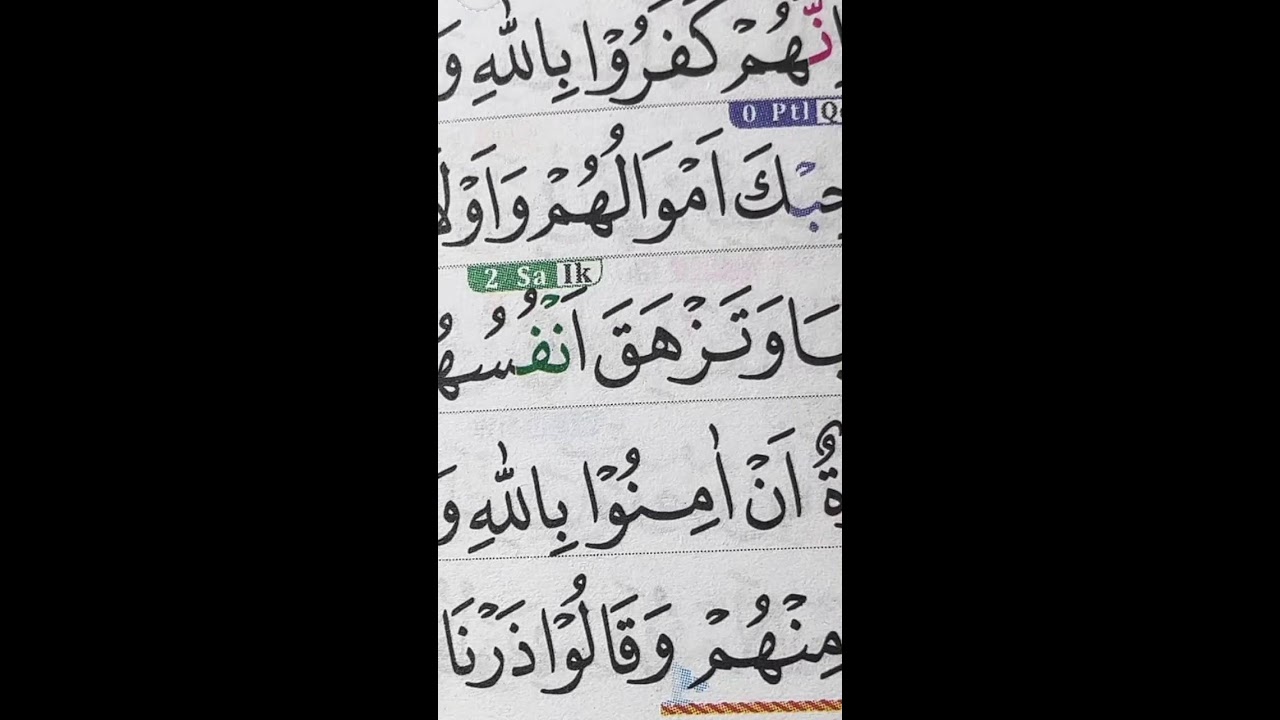 اِنَّهُمْ كَفَرُوْا بِاللّٰهِ وَ
0 Ptl
جِبْكَ اَمْوَالُهُمْ وَاَوْلَا
2 Sa Ik
ـَا وَتَزْهَقَ اَنْفُسُهُ
ةٌ اَنْ اٰمِنُوْا بِاللّٰهِ وَ
مِنْهُمْ وَقَالُوْا ذَرْنَا